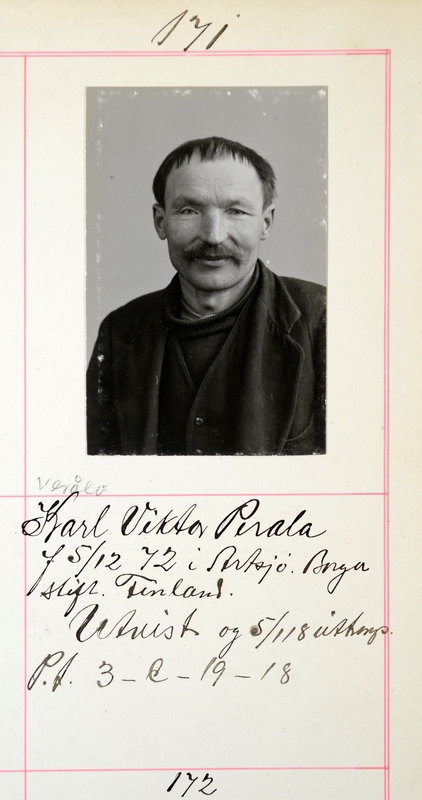 171
Karl Viktor Perala
f 5/12 72 i Artsjö. Borga
stift. Finland.
Utvist og 5/1 18
P.f. 3 - C - 19 - 18
172